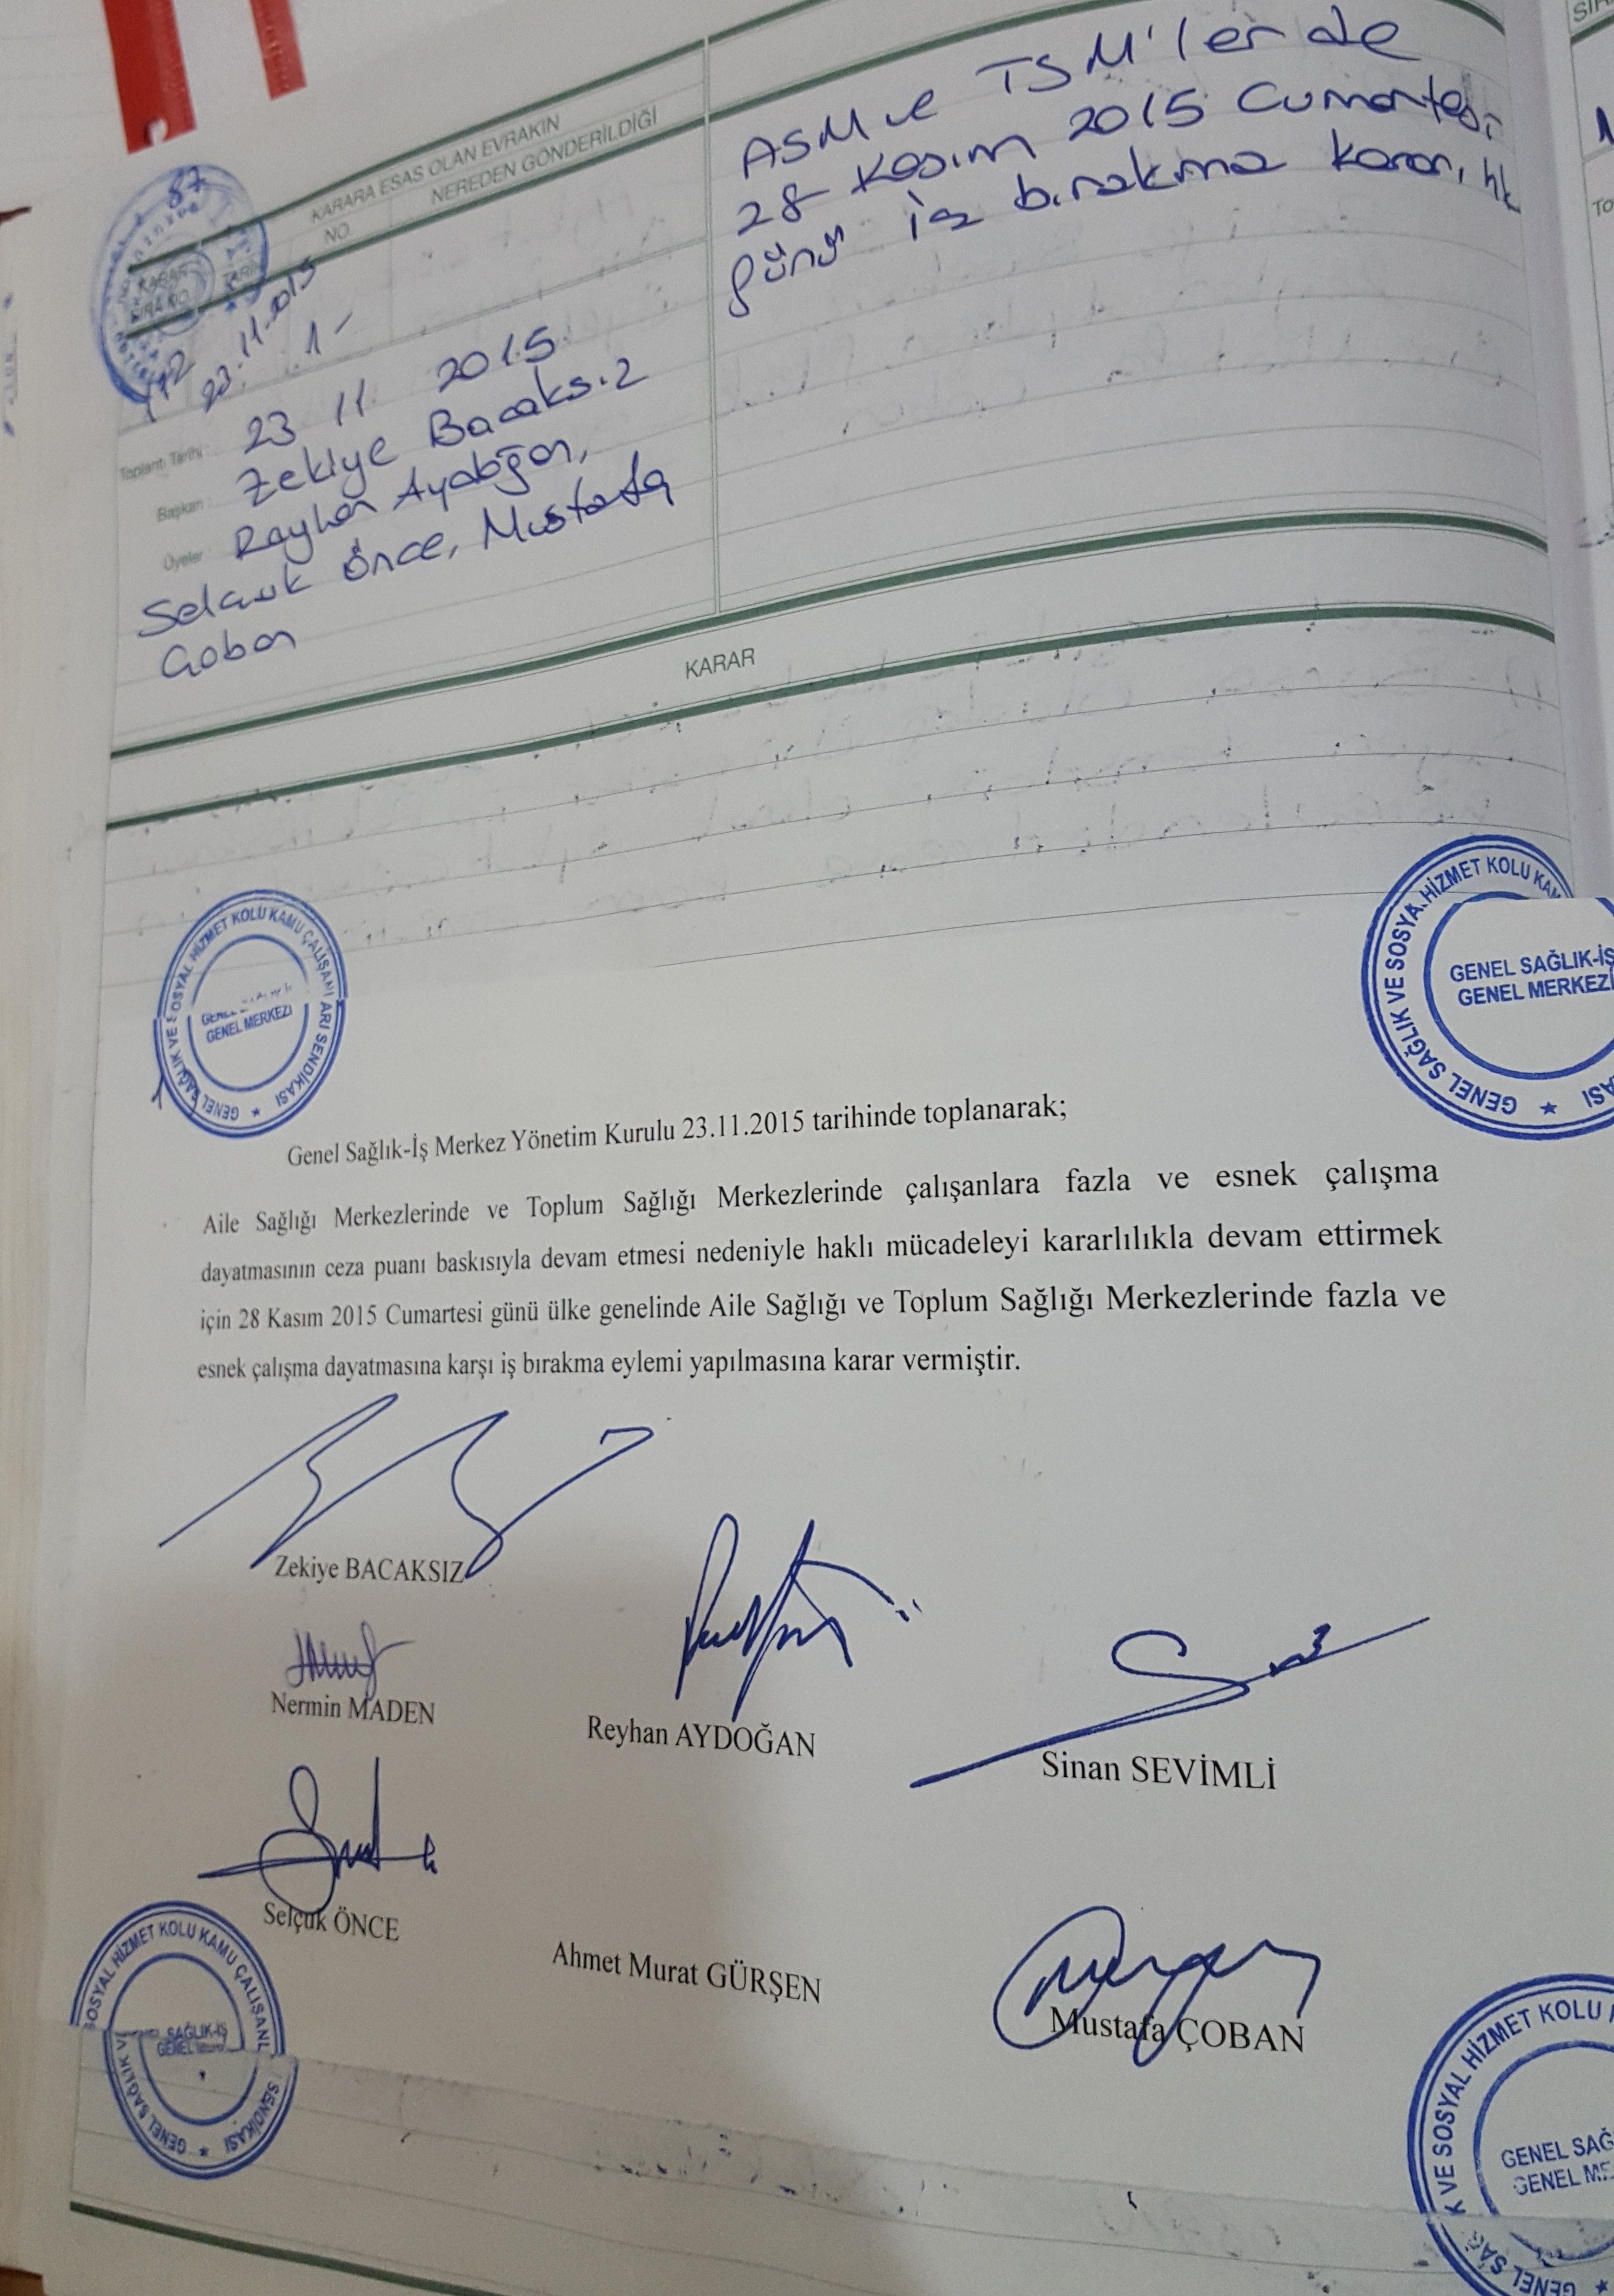 KARARA ESAS OLAN EVRAKIN
NO NEREDEN GÖNDERİLDİĞİ
KARAR SIRA NO
23.11.2015
1-
ASM ve TSM'lerde
28 Kasım 2015 Cumartesi
günü iş bırakma kararı hk
Toplantı Tarihi: 23 11 2015
Başkan: Zekiye Bacaksız
Üyeler: Reyhan Aydoğan,
Selçuk Önce, Mustafa
Çoban
KARAR
GENEL SAĞLIK VE SOSYAL HİZMET KOLU KAMU ÇALIŞANLARI SENDİKASI
GENEL MERKEZİ
GENEL SAĞLIK VE SOSYAL HİZMET KOLU
GENEL SAĞLIK-İŞ
GENEL MERKEZİ
Genel Sağlık-İş Merkez Yönetim Kurulu 23.11.2015 tarihinde toplanarak;
Aile Sağlığı Merkezlerinde ve Toplum Sağlığı Merkezlerinde çalışanlara fazla ve esnek çalışma
dayatmasının ceza puanı baskısıyla devam etmesi nedeniyle haklı mücadeleyi kararlılıkla devam ettirmek
için 28 Kasım 2015 Cumartesi günü ülke genelinde Aile Sağlığı ve Toplum Sağlığı Merkezlerinde fazla ve
esnek çalışma dayatmasına karşı iş bırakma eylemi yapılmasına karar vermiştir.
Zekiye BACAKSIZ
Nermin MADEN
Reyhan AYDOĞAN
Sinan SEVİMLİ
Selçuk ÖNCE
Ahmet Murat GÜRŞEN
Mustafa ÇOBAN
GENEL SAĞLIK VE SOSYAL HİZMET KOLU KAMU ÇALIŞANL SENDİKASI
SAĞLIK-İŞ
GENEL
VE SOSYAL HİZMET KOLU
GENEL SAĞ
GENEL ME